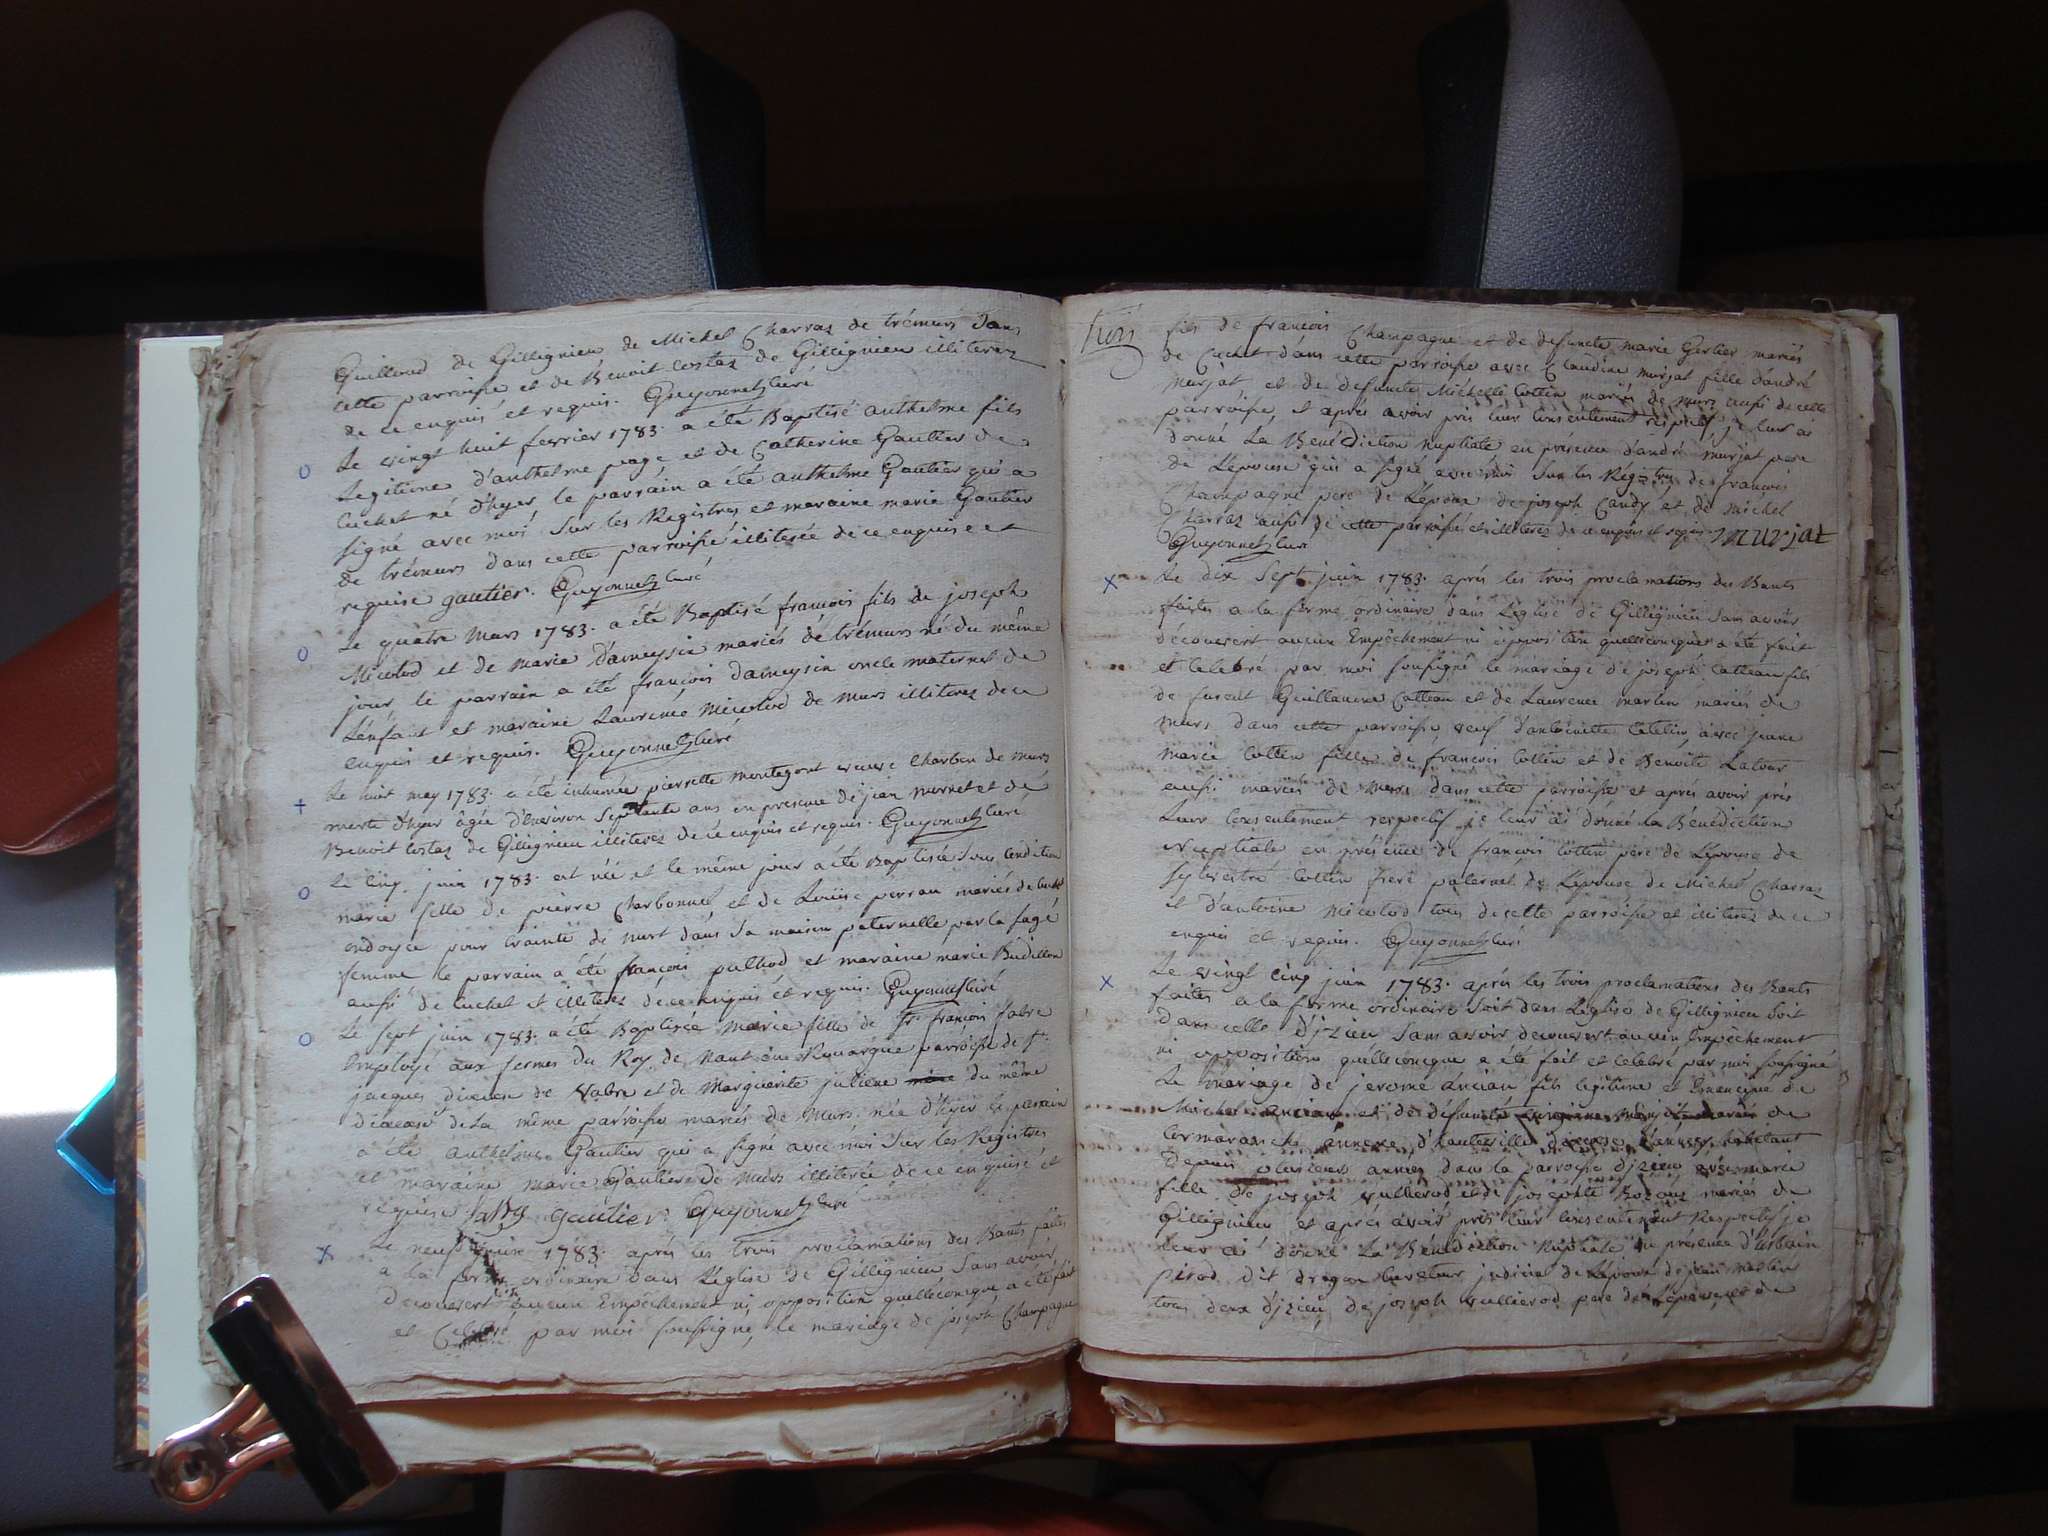 Guilloud de Gillignieu de Michel Charraz de trémurs dans
cette parroisse et de Benoit Costaz de Gillignieu illiterez
de ce enquis et requis. Guyonnetz curé
Le vingt huit fevrier 1783. a été Baptisé anthelme fils
Legitime d'anthelme page et de Catherine Gautier de
Cuchet né d'hyer le parrain a été anthelme Gautier qui a
signé avec moi sur les Registres et maraine marie Gautier
de trémurs dans cette parroisse illiterée de ce enquise et
requise gautier. Guyonnetz curé
Le quatre mars 1783. a été Baptisé francois fils de joseph
Micolod et de marie Dameysin mariés de trémurs né du même
jour le parrain a été francois dameysin oncle maternel de
L'enfant et maraine Laurence Micolod de murs illiterez de ce
enquis et requis. Guyonnetz curé
Le huit may 1783. a été inhumée pierrette montegont veuve Charbon de murs
morte d'hyer âgée d'environ septante ans en presence de jean murret et de
Benoit Costaz de Gillignieu illiterez de ce enquis et requis. Guyonnetz curé
Le cinq juin 1783. est née et le même jour a été Baptisée sous condition
marie fille de pierre Charbonnel et de Louise perrau mariés de Cuchet
endoyée pour crainte de mort dans sa maison paternelle par la sage
femme le parrain a été françois pulliod et maraine marie Budillon
aussi de Cuchet et illiterez de ce enquis et requis. Guyonnetz curé
Le sept juin 1783. a été Baptisée Marie fille de Sr. francois fabre
Employé aux fermes du Roy de Nant en Rouargue parroisse de St.
jacques diocese de Vabre et de Marguerite juliene du même
diocese de La même parroisse mariés de Murs née d'hyer le parrain
a été anthelme Gautier qui a signé avec moi sur les Registres
et maraine marie Gautier de Murs illiterée de ce enquise et
requise fabre gautier. Guyonnetz curé
Le neuf juin 1783. après les trois proclamations des Bants faites
a la forme ordinaire dans L'église de Gillignieu sans avoir
decouvert aucun Empêchement ni opposition quelleconque a été fait
et Celebré par moi soussigné le mariage de joseph Champagne
fils de francois Champagne et de defuncte marie Gerlier mariés
de Cuchet dans cette parroisse avec Claudine murjat fille d'andré
Murjat et de defuncte Michelle Cottin mariés de murs aussi de cette
parroisse, et après avoir pris leur consentement respectif je leur ai
donné La Bénédiction Nuptiale en présence d'andré murjat pere
de L'epouse qui a signé avec moi sur les Registres de francois
Champagne pere de L'epoux de joseph Candy et de michel
Charraz aussi de cette parroisse et illiterez de ce enquis et requis. murjat
Guyonnetz curé
Le dix sept juin 1783. après les trois proclamations des Bants
faites a la forme ordinaire dans L'église de Gillignieu sans avoir
découvert aucun Empêchement ni opposition quelleconque a été fait
et Celebré par moi soussigné le mariage de joseph Catteau fils
de furent Guillaume Catteau et de Laurence martin mariés de
Murs dans cette parroisse veuf d'antoinette avec jeane
marie Cottin fille de francois Cottin et de Benoite Latour
aussi mariés de Murs dans cette parroisse et après avoir pris
Leur consentement respectif je leur ai donné La Bénédiction
Nuptiale en présence de francois Cottin pere de L'epouse de
sylvestre Cottin frere paternel de L'epouse de Michel Charraz
et d'antoine Micolod tous de cette parroisse et illiterez de ce
enquis et requis. Guyonnetz curé
Le vingt cinq juin 1783. après les trois proclamations des Bants
faites a la forme ordinaire soit dans L'église de Gillignieu soit
dans celle d'jzieu sans avoir decouvert aucun Empêchement
ni opposition quelleconque a été fait et celebré par moi soussigné
Le mariage de jerome ancian fils legitime et Emancipé de
Michel ancian et de défuncte de
Cormaranche annexe d'hauteville diocese habitant
Depuis plusieurs années dans la parroisse d'jzieu avec marie
fille de joseph Vullierod et de josephte Rozaux mariés de
Gillignieu et après avoir pris leur consentement Respectif je
leur ai donné La Bénédiction Nuptiale en presence d'urbain
pirod dit dragon curateur de L'epoux de jean Martin
tous deux d'jzieu, de joseph Vullierod pere de L'epouse de